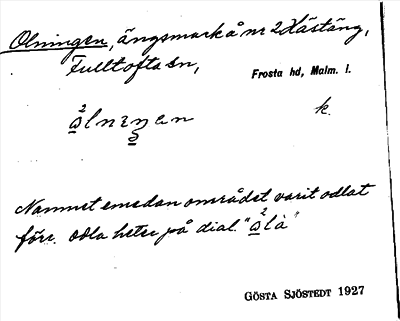 Olningen, ängsmark å nr 2 Hästäng,
Fulltofta sn,
Frosta hd, Malm. l.
k.
Namnet emedan området varit odlat
förr. odla heter på dial. "å²là"
GÖSTA SJÖSTEDT 1927